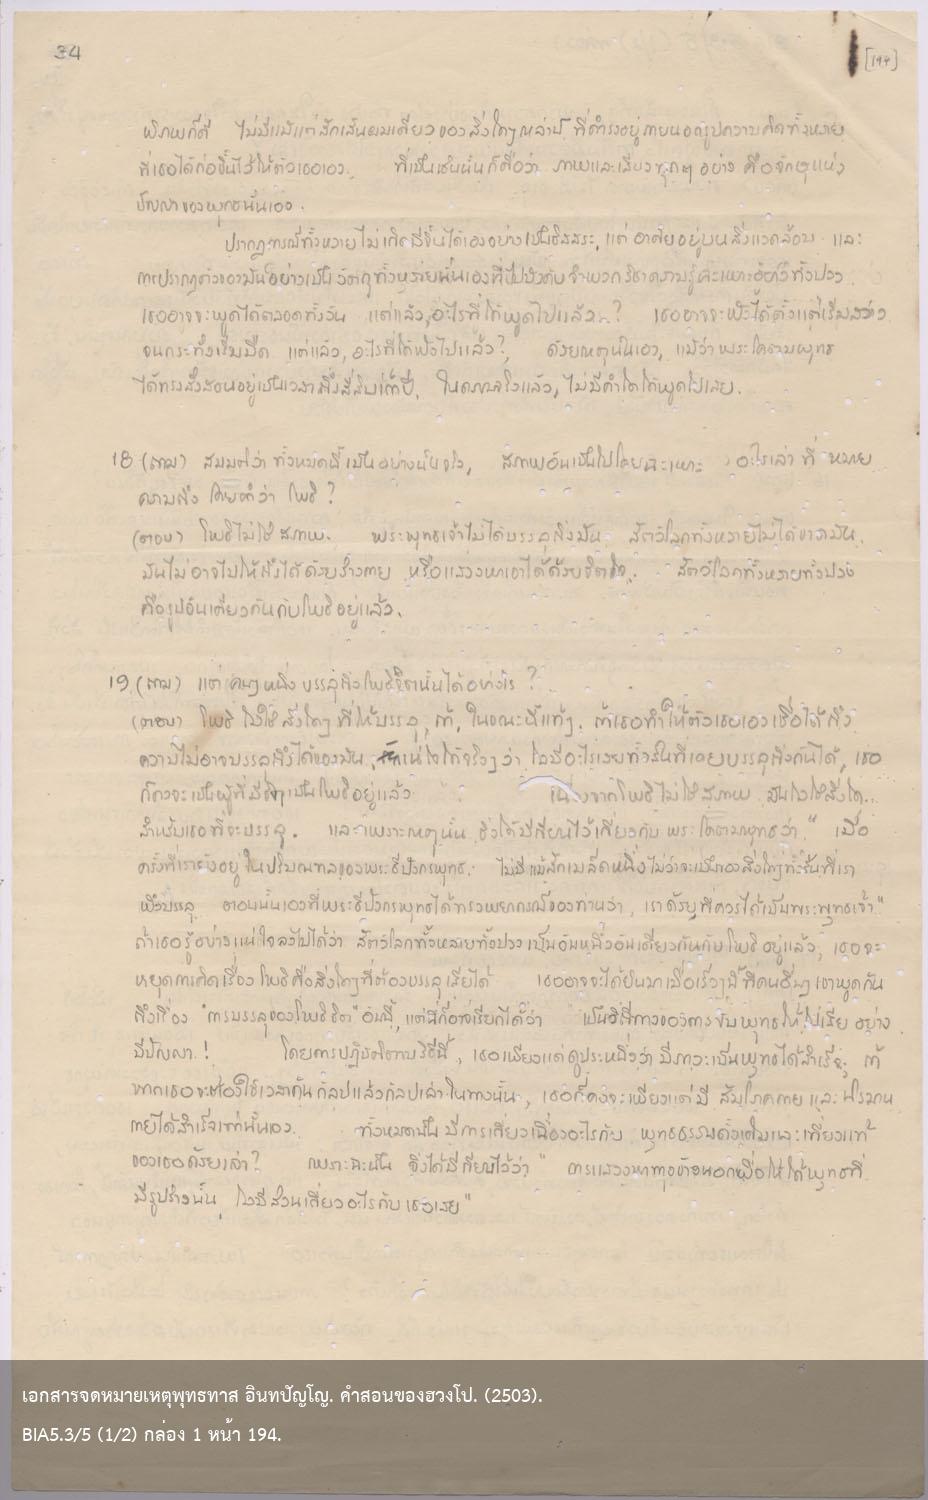 34
[194]
พิภพก็ดี ไม่มีแม้แต่สักเส้นผมเดียวของสิ่งใดๆเหล่านี้ ที่ดำรงอยู่ภายนอกรูปความคิดทั้งหลาย
ที่เธอได้ก่อขึ้นไว้ให้ตัวเธอเอง. ที่เป็นเช่นนั้นก็คือว่า ภาพและเสียงทุกๆ อย่าง คือจักษุแห่ง
ปัญญาของพุทธนั้นเอง.
ปรากฏการณ์ทั้งหลายไม่เกิดมีขึ้นได้เองอย่างเป็นอิสสระ, แต่ อาศัยอยู่บนสิ่งแวดล้อม และ
การปรากฏตัวของมันอย่างเป็นวัตถุทั้งหลายนั่นเองที่ไปบังคับจำพวกวิชาความรู้เฉพาะอย่างทั้งปวง
เธออาจจะพูดได้ตลอดทั้งวัน แต่แล้ว, อะไรที่ได้พูดไปแล้ว? เธออาจจะฟังได้ตั้งแต่เริ่มสว่าง
จนกระทั่งเริ่มมืด แต่แล้ว, อะไรที่ได้ฟังไปแล้ว? ด้วยเหตุนั้นเอง, แม้ว่าพระโคตมพุทธ
ได้ทรงสั่งสอนอยู่เป็นเวลาถึงสี่สิบเก้าปี, ในความจริงแล้ว, ไม่มีคำใดได้พูดไปเลย.
18 (ถาม) สมมตว่า ทั้งหมดนี้เป็นอย่างนั้นจริง, สภาพอันเป็นไปโดยเฉพาะ อะไรเล่า ที่ หมาย
ความถึง โดยคำว่า โพธิ?
(ตอบ) โพธิไม่ใช่สภาพ. พระพุทธเจ้าไม่ได้บรรลุถึงมัน สัตว์โลกทั้งหลายไม่ได้ขาดมัน.
มันไม่อาจไปให้ถึงได้ด้วยร่างกาย หรือแสวงหาเอาได้ด้วยจิตใจ. สัตว์โลกทั้งหลายทั้งปวง
คือรูปอันเดียวกันกับโพธิอยู่แล้ว.
19 (ถาม) แต่ คนๆหนึ่ง บรรลุถึงโพธิจิตนั้นได้ อย่างไร?
(ตอบ) โพธิ ไม่ใช่สิ่งใดๆ ที่ให้บรรลุ, ถ้า, ในขณะนี้แท้ๆ. ถ้าเธอทำให้ตัวเธอเองเชื่อได้ถึง
ความไม่อาจบรรลุถึงได้ของมัน, แน่ใจได้จริงๆว่า ไม่มีอะไรเลยทั่วสิ้นที่เคยบรรลุถึงกันได้, เธอ
ก็คงจะเป็นผู้ที่มีใจเป็นโพธิอยู่แล้ว เนื่องจากโพธิไม่ใช่สภาพ มันไม่ใช่สิ่งใด..
สำหรับเธอที่จะบรรลุ. และเพราะเหตุนั้น จึงได้มีเขียนไว้เกี่ยวกับ พระโคตมพุทธว่า " เมื่อ
ครั้งที่เรายังอยู่ในปริมณฑลของพระธีปังกรพุทธ ไม่มีแม้สักเมล็ดหนึ่งไม่ว่าจะเป็นของสิ่งใดๆทั้งสิ้นที่เรา
พึงบรรลุ ตอนนั้นเองที่พระธีปังกรพุทธได้ทรงพยากรณ์ของท่านว่า, เราด้วยที่ควรได้เป็นพระพุทธเจ้า"
ถ้าเธอรู้อย่างแน่ใจลงไปได้ว่า สัตว์โลกทั้งหลายทั้งปวงเป็นอันหนึ่งอันเดียวกันกับโพธิอยู่แล้ว, เธอจะ
หยุดการคิดเรื่องโพธิคือสิ่งใดๆที่ต้องบรรลุเสียได้ เธออาจจะได้ยินมาเมื่อเร็วๆนี้ ที่คนอื่นๆเขาพูดกัน
ถึงเรื่อง "การบรรลุของโพธิจิต" อันนี้, แต่นี่ก็อาจเรียกได้ว่า เป็นวิถีทางของการขับพุทธให้ไปเสีย อย่าง
มีปัญญา! โดยการปฏิบัติตามวิธีนี้, เธอเพียงแต่ดูประหนึ่งว่า มีภาวะเป็นพุทธได้สำเร็จ; ถ้า
หากเธอจะต้องใช้เวลาตั้งกัลปแล้วกัลปเล่าในทางนั้น, เธอก็คงจะเพียงแต่มี สัมโภคกาย และ นิรมาณ
กายได้สำเร็จเท่านั้นเอง. ทั้งหมดนั้น มีการเกี่ยวเนื่องอะไรกับ พุทธธรรมดั้งเดิมและเที่ยงแท้
ของเธอด้วยเล่า? เพราะฉะนั้น จึงได้มีเขียนไว้ว่า " การแสวงหาทางข้างนอกเพื่อให้ได้พุทธที่
มีรูปร่างนั้น, ไม่มีส่วนเกี่ยวอะไรกับเธอเลย"
เอกสารจดหมายเหตุพุทธทาส อินทปัญโญ. คำสอนของฮวงโป. (2503).
BIA5.3/5 (1/2) กล่อง 1 หน้า 194.